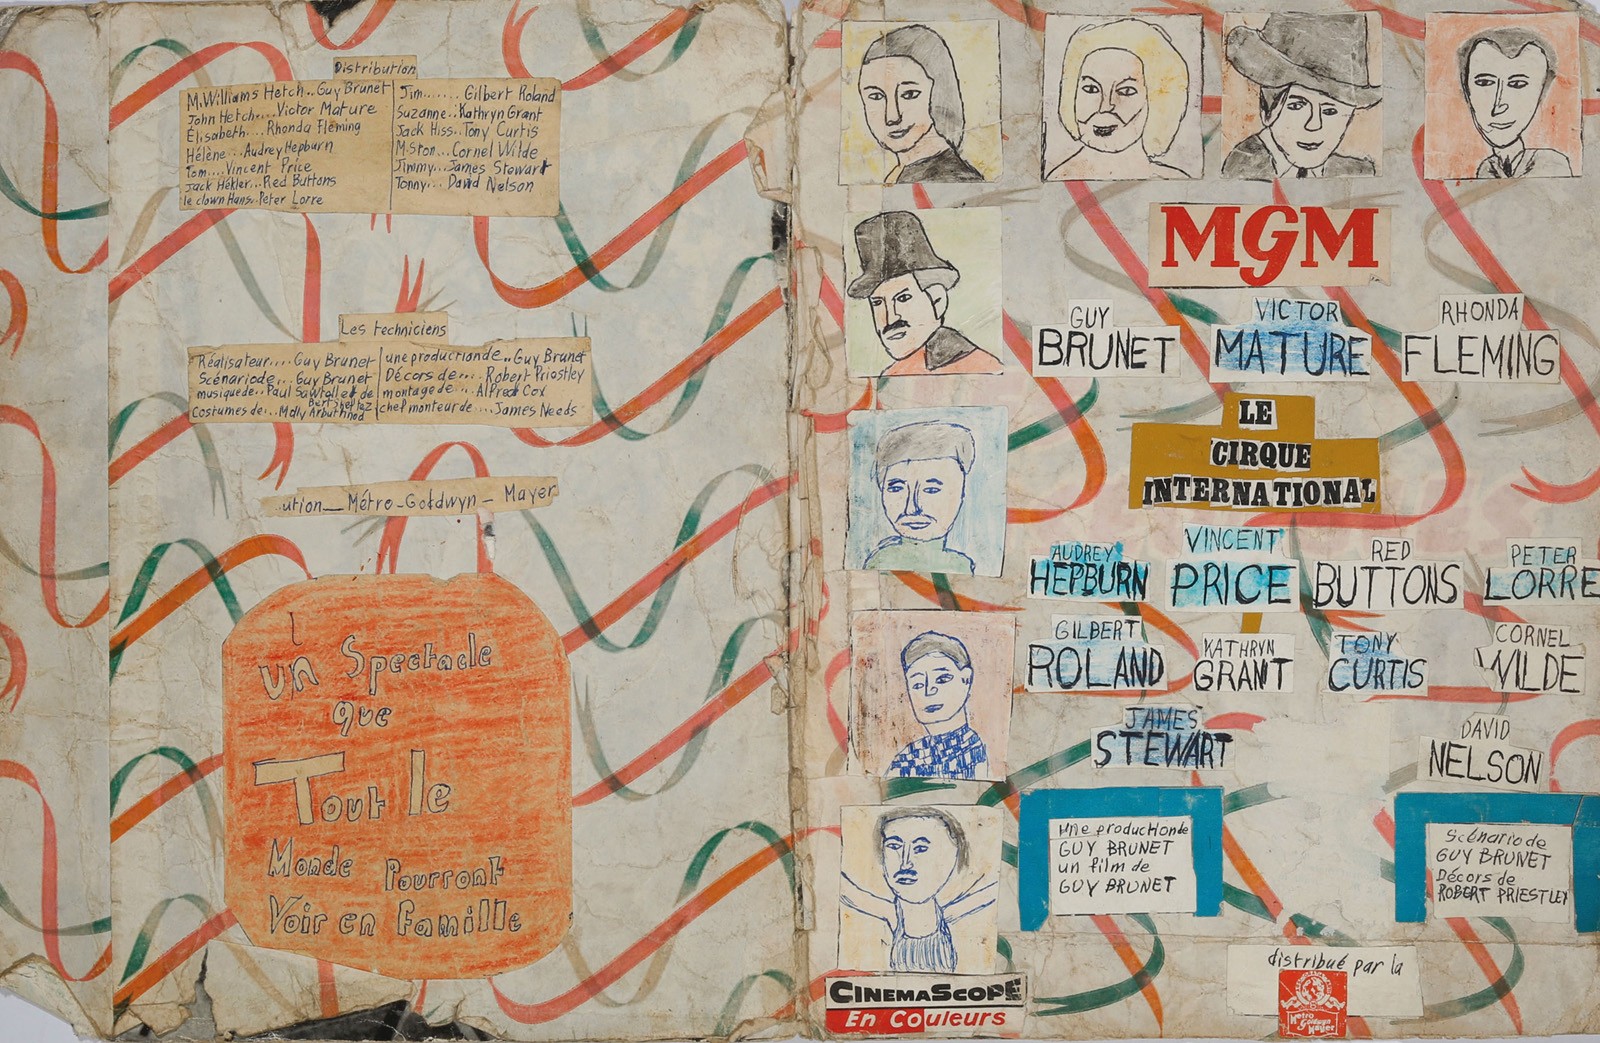 Distribution
M. Williams Hetch.. Guy Brunet
John Hetch.... Victor Mature
Élisabeth.... Rhonda Fleming
Hélène... Audrey Hepburn
Tom.... Vincent Price
Jack Hékler.. Red Buttons
le clown Hans. Peter Lorre
Jim....... Gilbert Roland
Suzanne.. Kathryn Grant
Jack Hiss.. Tony Curtis
M. Ston... Cornel Wilde
Jimmy... James Stewart
Tonny... David Nelson
Les techniciens
Réalisateur.... Guy Brunet
Scénario de... Guy Brunet
musique de.. Paul Sawtell et de
Bert Sheftez
Costumes de... Molly Arbuthnod
une production de.. Guy Brunet
Décors de.... Robert Priostley
montage de... Alfred Cox
chef monteur de... James Needs
ution_ Métro-Goldwyn-Mayer
un Spectacle
que
Tout le
Monde Pourront
Voir en famille
MGM
GUY
BRUNET
VICTOR
MATURE
RHONDA
FLEMING
LE
CIRQUE
INTERNATIONAL
AUDREY
HEPBURN
VINCENT
PRICE
RED
BUTTONS
PETER
LORRE
GILBERT
ROLAND
KATHRYN
GRANT
TONY
CURTIS
CORNEL
WILDE
JAMES
STEWART
DAVID
NELSON
une production de
GUY BRUNET
un film de
GUY BRUNET
Scénario de
GUY BRUNET
Décors de
ROBERT PRIESTLEY
distribué par la
Metro
Goldwyn
Mayer
CINEMASCOPE
En Couleurs